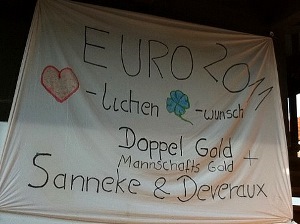 EURO 2011
-lichen -wunsch
Doppel Gold +
Mannschafts Gold
Sanneke & Deveraux